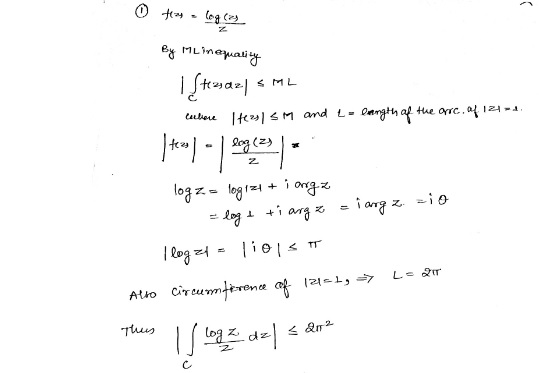 ① f(z) = log(z) / z
By ML inequality
|∫_C f(z) dz| ≤ ML
where |f(z)| ≤ M and L = length of the arc. of |z| = 1.
|f(z)| = |log(z) / z| =
log z = log |z| + i arg z
= log 1 + i arg z = i arg z = i θ
|log z| = |i θ| ≤ π
Also circumference of |z| = 1, ⇒ L = 2π
Thus |∫_C log z / z dz| ≤ 2π²